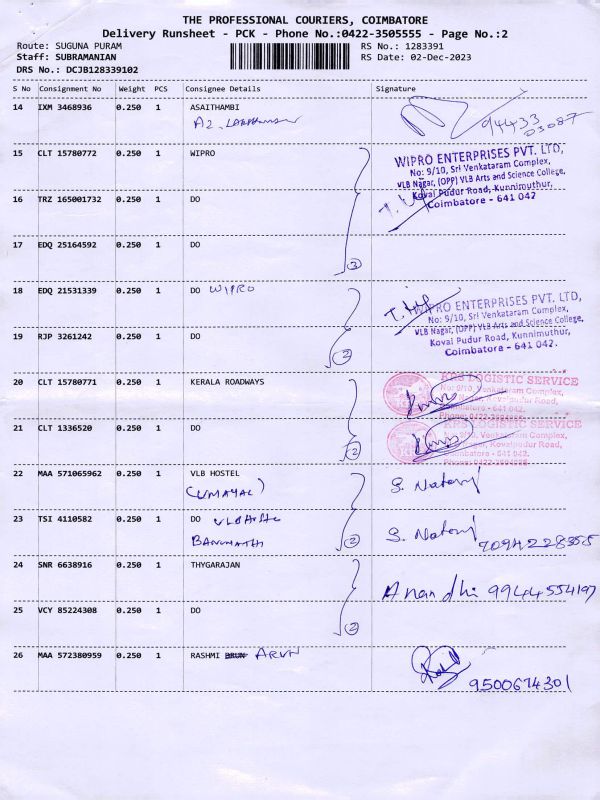 THE PROFESSIONAL COURIERS, COIMBATORE
Delivery Runsheet - PCK - Phone No.:0422-3505555 - Page No.:2
Route: SUGUNA PURAM RS No.: 1283391
Staff: SUBRAMANIAN RS Date: 02-Dec-2023
DRS No.: DCJB128339102
S No Consignment No Weight PCS Consignee Details Signature
14 IXM 3468936 0.250 1 ASAITHAMBI
A2, 94433
03087
15 CLT 15780772 0.250 1 WIPRO
WIPRO ENTERPRISES PVT. LTD,
No: 9/10, Sri Venkataram Complex,
VLB Nagar, (OPP) VLB Arts and Science College,
Kovai Pudur Road, Kunnimuthur,
Coimbatore - 641 042
16 TRZ 165001732 0.250 1 DO
17 EDQ 25164592 0.250 1 DO
3
18 EDQ 21531339 0.250 1 DO WIPRO
WIPRO ENTERPRISES PVT. LTD,
No: 9/10, Sri Venkataram Complex,
VLB Nagar, (OPP) VLB Arts and Science College,
Kovai Pudur Road, Kunnimuthur,
Coimbatore - 641 042.
19 RJP 3261242 0.250 1 DO
2
20 CLT 15780771 0.250 1 KERALA ROADWAYS
KRS LOGISTIC SERVICE
No: 9/10, Venkataram Complex,
Kovaipudur Road,
Coimbatore - 641 042.
21 CLT 1336520 0.250 1 DO
KRS LOGISTIC SERVICE
No: 9/10, Venkataram Complex,
Kovaipudur Road,
Coimbatore - 641 042.
2
22 MAA 571065962 0.250 1 VLB HOSTEL
(UMAYAL) S. Nataraj
23 TSI 4110582 0.250 1 DO VLB Hostel
BANUMATHI S. Nataraj
2
24 SNR 6638916 0.250 1 THYGARAJAN
Anandhi 9944554197
25 VCY 85224308 0.250 1 DO
2
26 MAA 572380959 0.250 1 RASHMI ARUN
9500674301